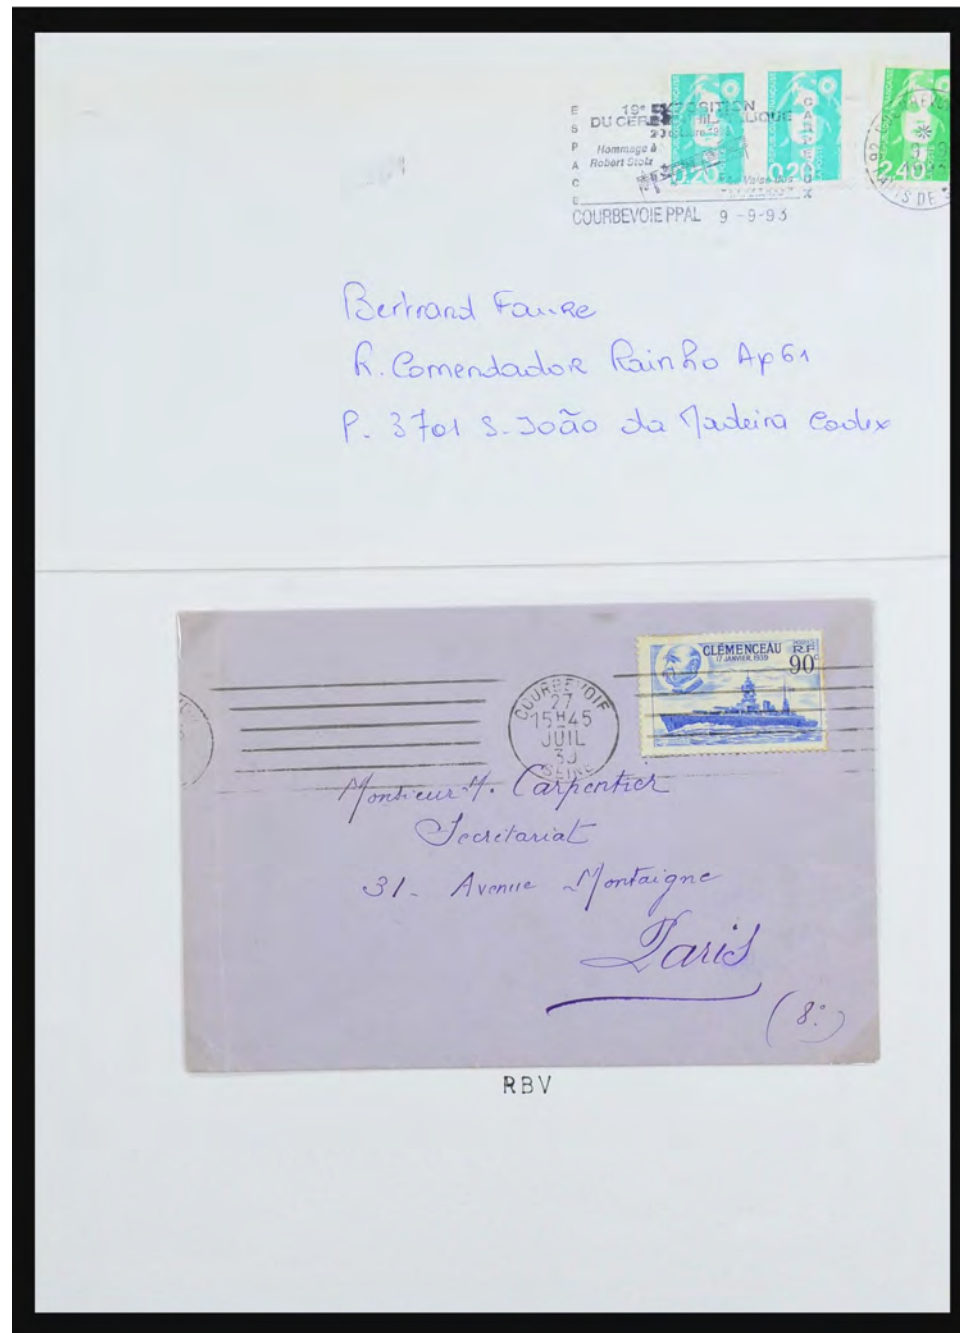 ESPACE
CARPEAUX
19e EXPOSITION
DU CERCLE PHILATELIQUE
Hommage à
Robert Stolz
COURBEVOIE PPAL 9-9-93
0,20
0,20
2,40
Bertrand Faure
R. Comendador Rainho Ap 61
P. 3701 S. João da Madeira Codex
CLÉMENCEAU RF
17 JANVIER 1939 90c
COURBEVOIE
27
15H45
JUIL
39
SEINE
Monsieur M. Carpentier
Secrétariat
31 - Avenue Montaigne
Paris
(8e)
RBV